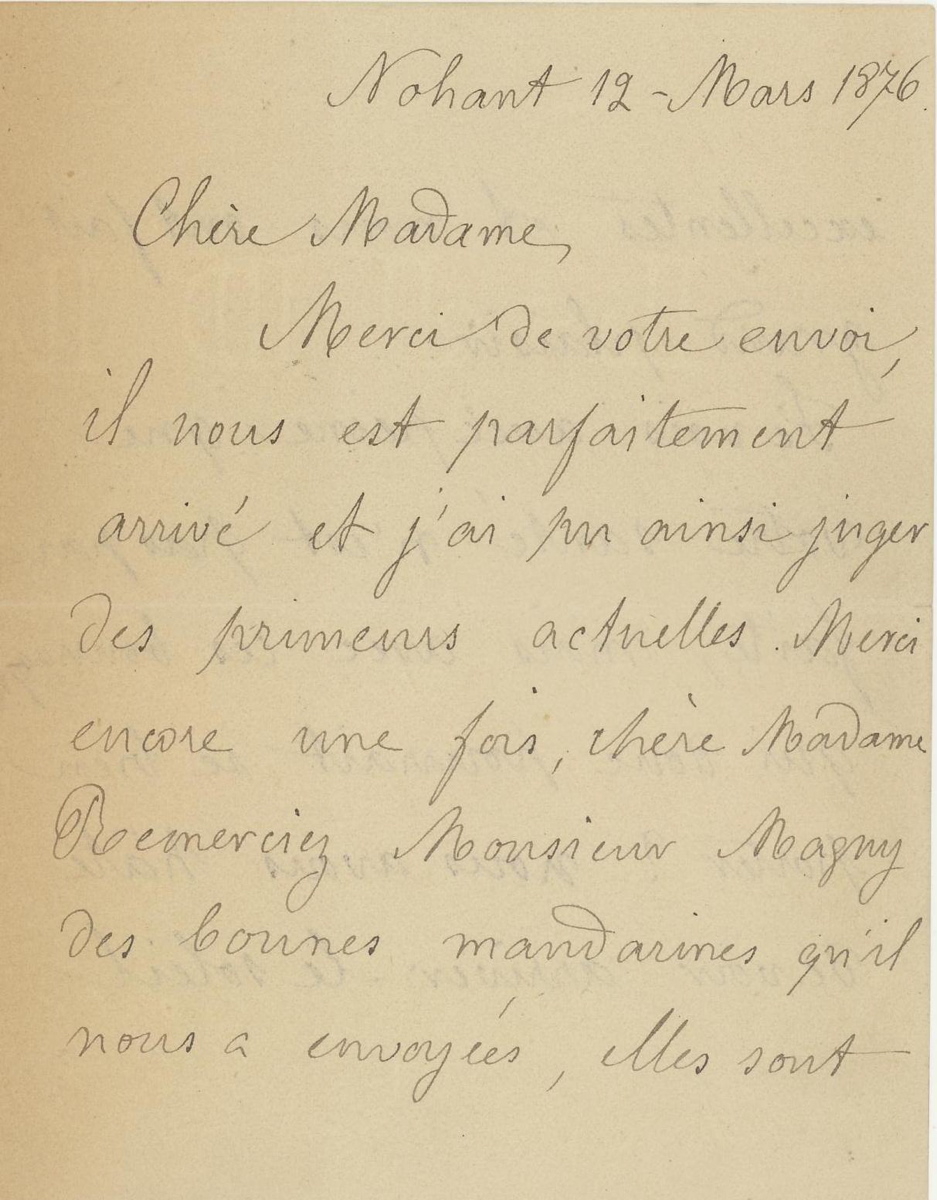 Nohant 12 - Mars 1876.
Chère Madame,
Merci de votre envoi,
il nous est parfaitement
arrivé et j'ai pu ainsi juger
des primeurs actuelles. Merci
encore une fois, chère Madame
Remerciez Monsieur Magny
des bonnes mandarines qu'il
nous a envoyées, elles sont